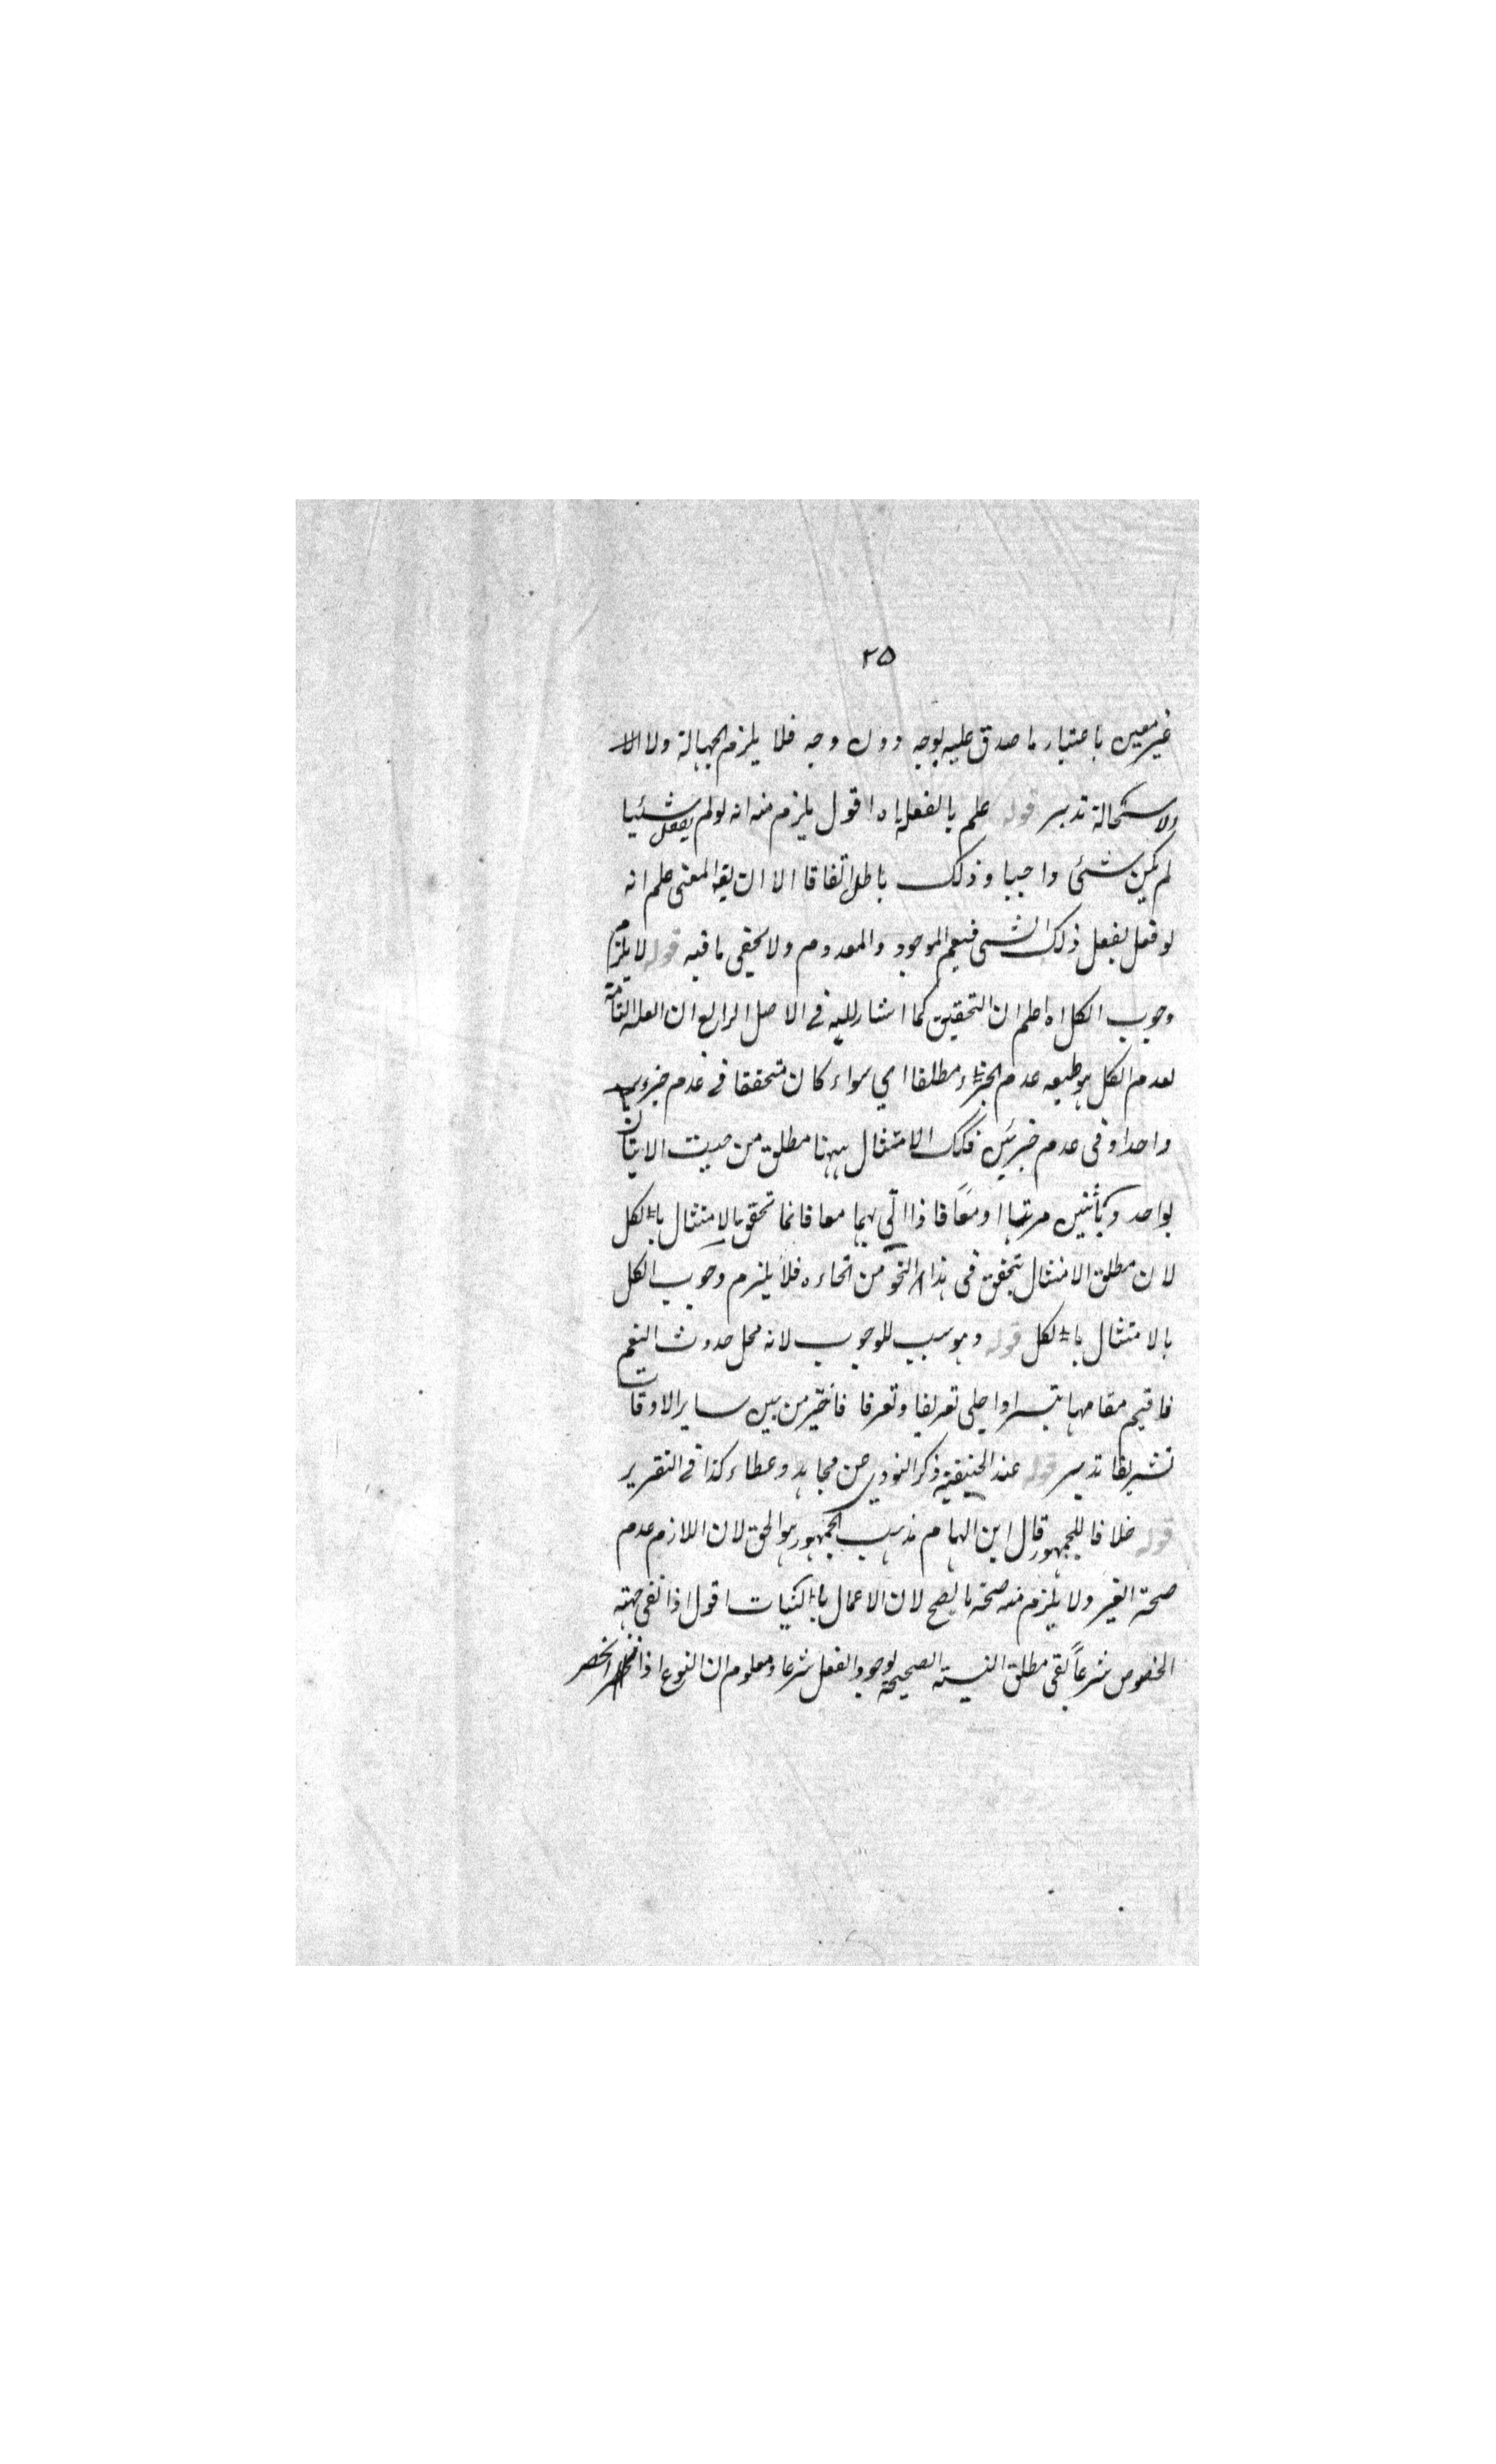 ٢٥
غير معين باعتبار ما صدق عليه بوجه دون وجه فلا يلزم الجهالة ولا الا
ولاستحالة تدبر قوله علم بالفعل اه اقول يلزم منه انه لو لم يفعل شئيا
لم يكن شئ واجبا وذلك باطل اتفاقا الا ان يقه المعنى علم انه
لو فعل يفعل ذلك الشئ فيعم الموجود والمعدوم ولا يخفى ما فيه قوله لا يلزم
وجوب الكل اه اعلم ان التحقيق كما اشار اليه في الاصل الرابع ان العلة التامة
لعدم الكل هو طبيعه عدم الجزء مطلقا اي سواء كان متحققا في عدم جزء
واحد او في عدم جزئين فكك الامتثال ههنا مطلق من حيث الاتيان
بواحد وباثنين مرتبا او معًا فاذا اتى بهما معا فانما تحقق الامتثال بالكل
لان مطلق الامتثال يتحقق في هذا النحو من انحاءه فلا يلزم وجوب الكل
بالامتثال بالكل قوله وهو سبب للوجوب لانه محل حدوث النعم
فاقيم مقامها تيسرا واجلى تعريفا وتعرفا فاختير من بين ساير الاوقات
تشريفا تدبر قوله عند الحنيفية ذكر النووي عن مجاهد وعطاء كذا في التقرير
قوله خلافا للجمهور قال ابن الهمام مذهب الجمهور هو الحق لان اللازم عدم
صحة الغير ولا يلزم منه صحة ما يصح لان الاعمال بالنيات اقول اذا نفى جهته
الخصوص شرعاً بقى مطلق النية الصحيحة لوجود الفعل شرعا ومعلوم ان النوع اذا انحصر